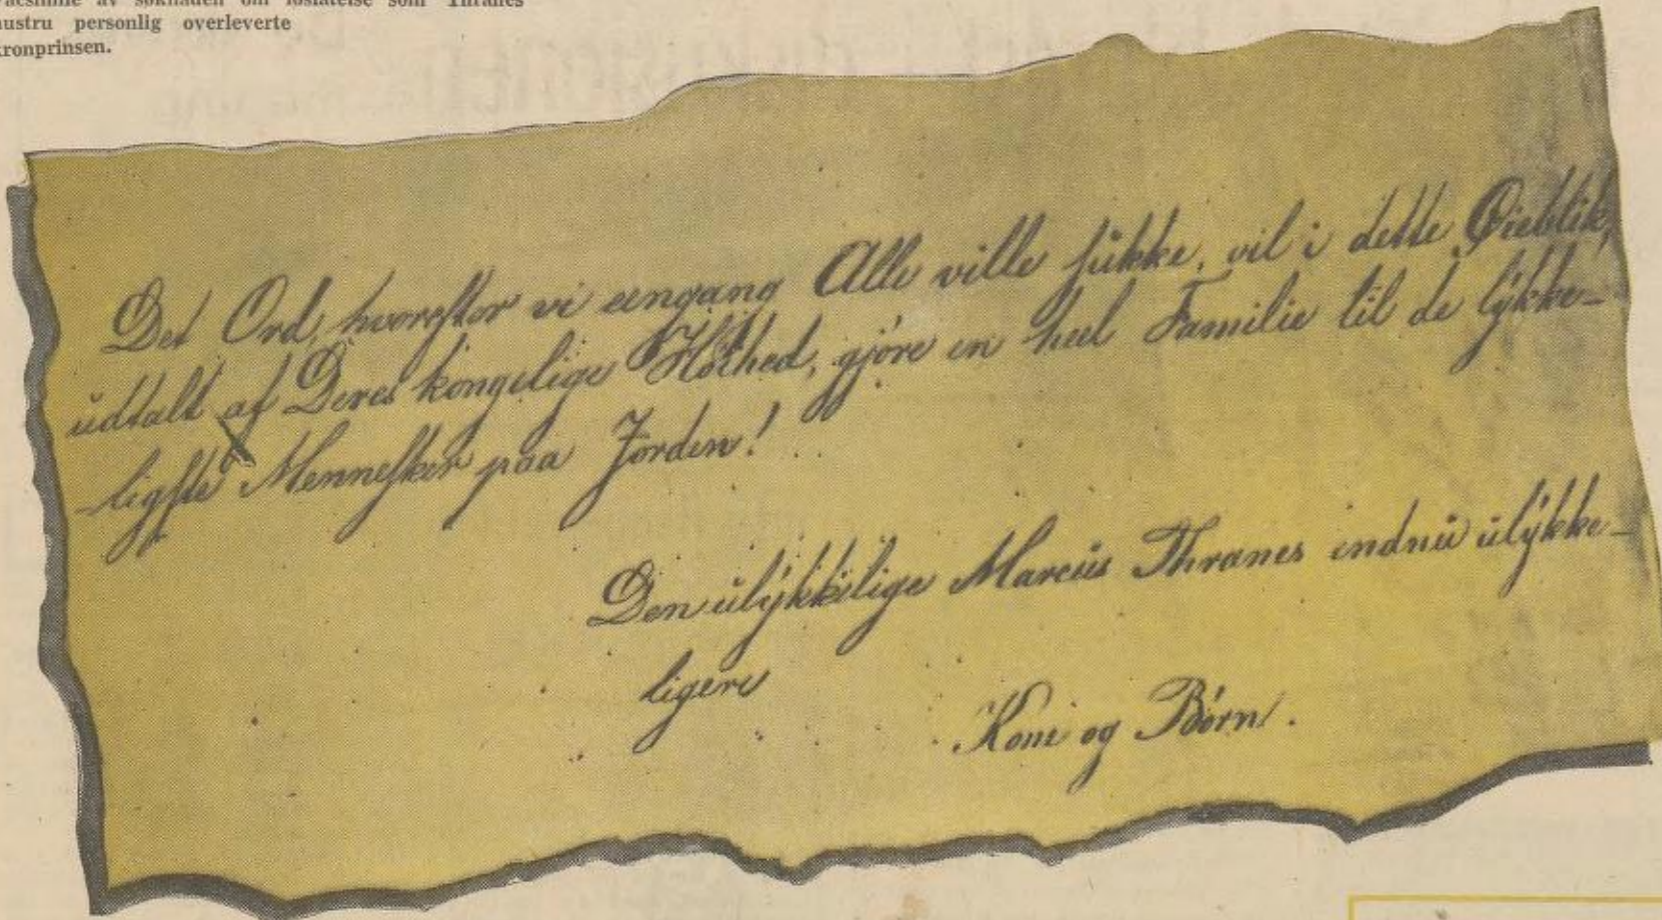 Facsimile av søknaden om løslatelse som Thranes
hustru personlig overleverte
kronprinsen.
Det Ord, hvorefter vi eengang Alle ville sukke, vil i dette Øieblik,
udtalt af Deres kongelige Høihed, gjøre en heel Familie til de lykke-
-ligste Mennesker paa Jorden!
Den ulykkelige Marcus Thranes endnu ulykke-
ligere
Kone og Børn.